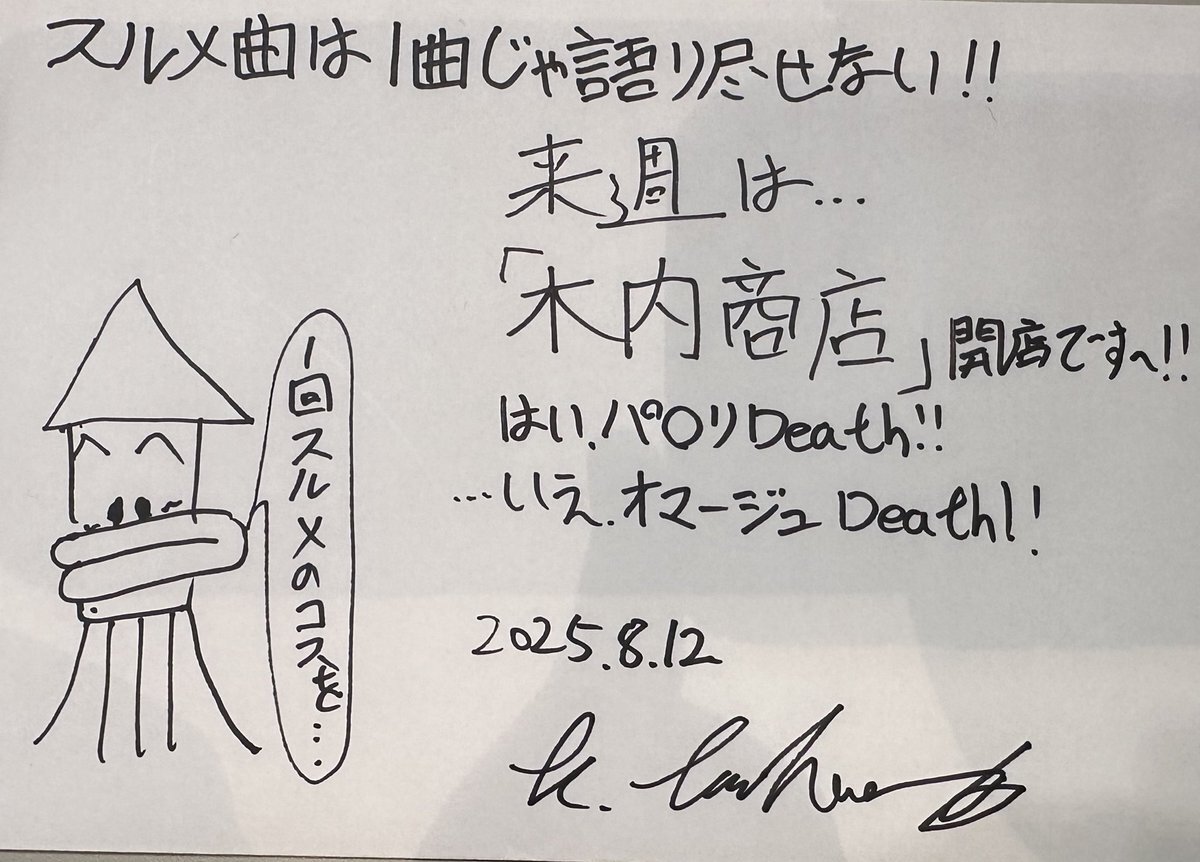 スルメ曲は1曲じゃ語り尽せない!!
来週は…
「木内商店」開店です〜!!
はい、パロリDeath!!
…いえ、オマージュDeath!!
1回スルメのコスを…
2025.8.12